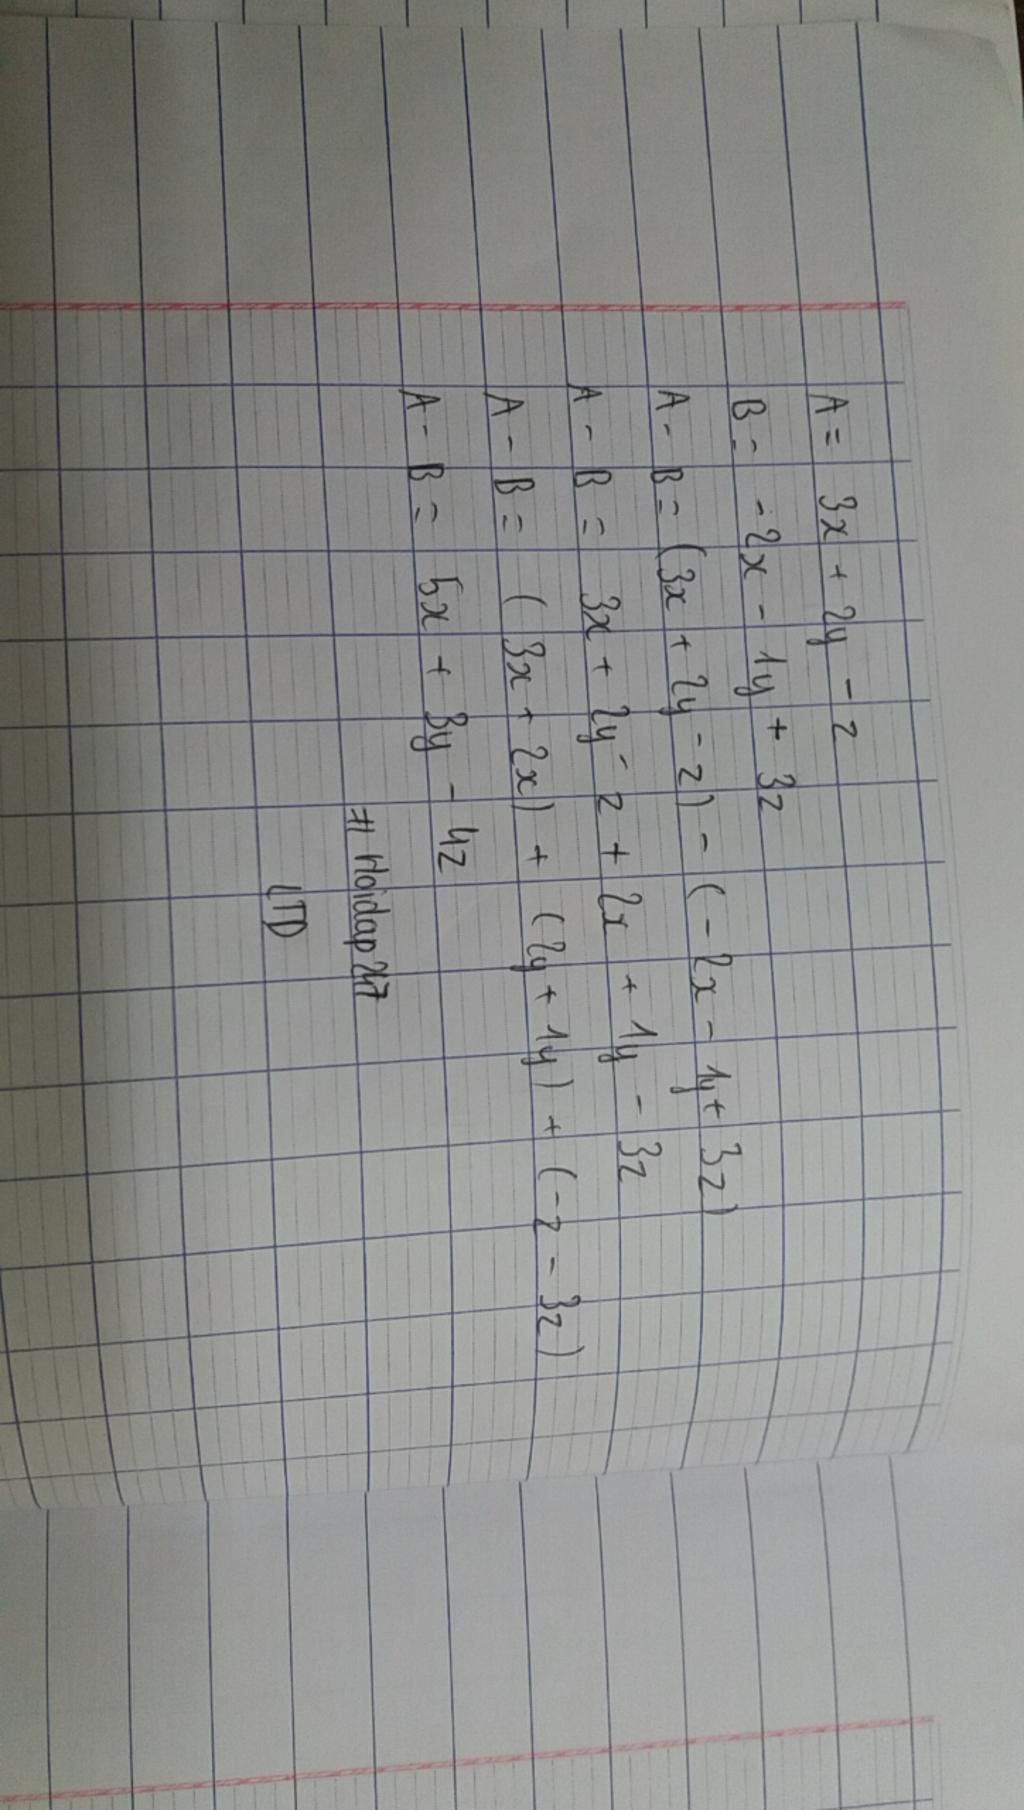 A = 3x + 2y - z
B = -2x - 1y + 3z
A - B = (3x + 2y - z) - (-2x - 1y + 3z)
A - B = 3x + 2y - z + 2x + 1y - 3z
A - B = (3x + 2x) + (2y + 1y) + (-z - 3z)
A - B = 5x + 3y - 4z
# Hoidap247
LTD